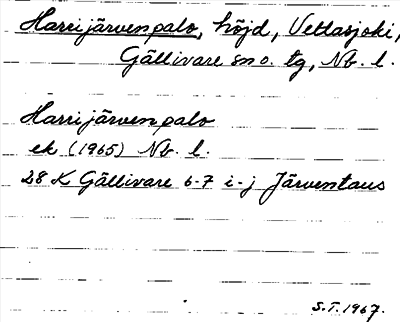 Harrijärvenpalo, höjd, Vettasjoki,
Gällivare sn o. tg, Nb. l.
Harrijärvenpalo
ek (1965) Nb. l.
28 K Gällivare 6-7 i-j Järventaus
S.T. 1967.